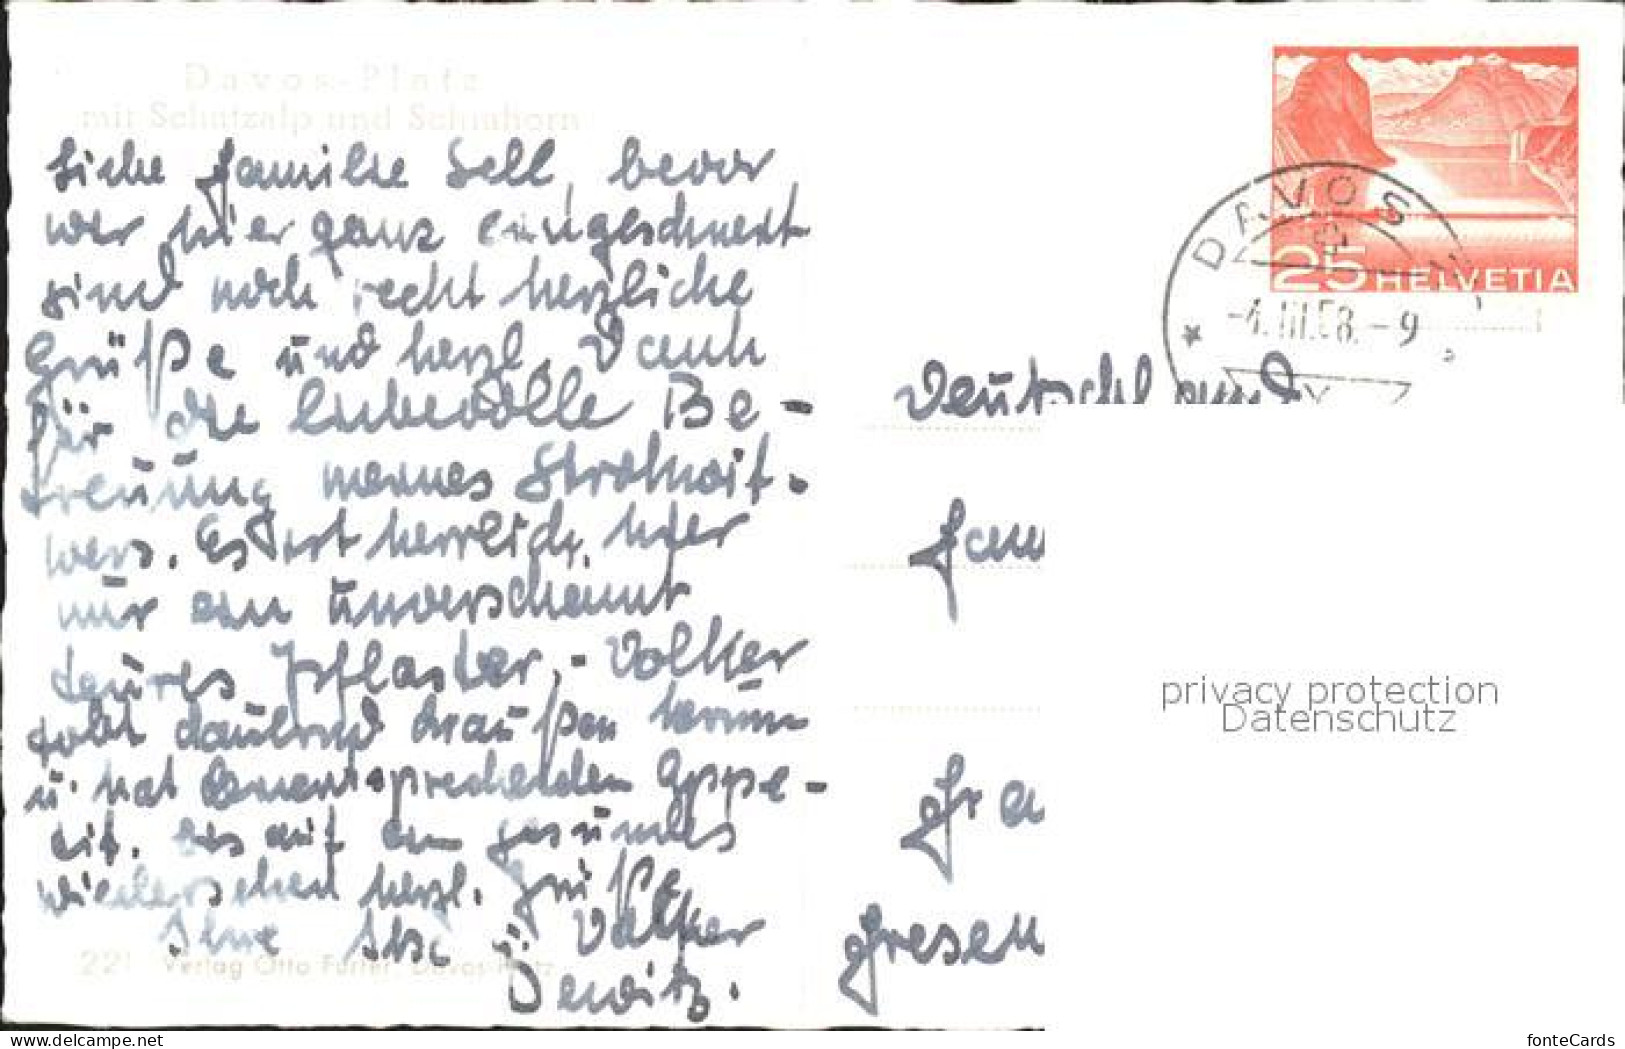 Davos-Platz
mit Schatzalp und Schiahorn
Liebe Familie Sell, bevor
wir hier ganz eingeschneit
sind noch recht herzliche
Grüße und herzl. Dank
für die liebevolle Be-
treuung meines Strohwit-
wers. Es ist herrlich, hier
nur ein unverschämt
teures Pflaster. - Volker
tobt dauernd draußen herum
u. hat dementsprechenden Appe-
tit. Bis auf ein gesundes
Wiedersehen herzl. Grüße
Ihre Ilse u. Volker
Dewitz.
221 Verlag Otto Furter, Davos-Platz
25 HELVETIA
DAVOS
-4.III.58.-9
Deutschland
Fam
Gießen
privacy protection
Datenschutz
www.delcampe.net
fonteCards